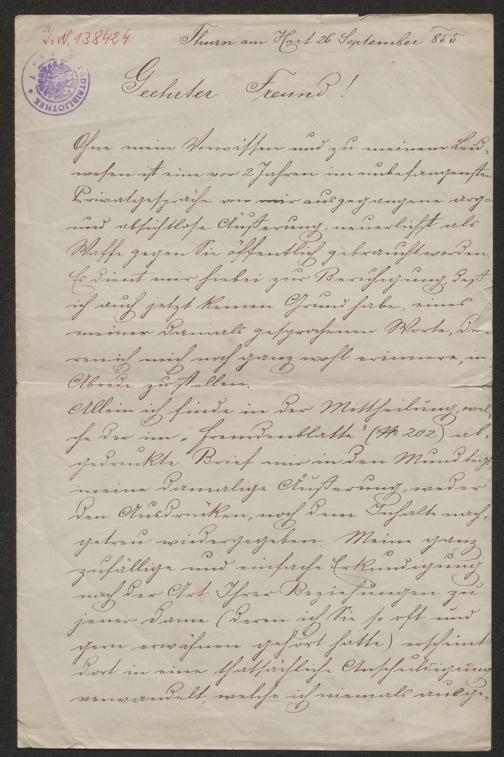 I.N. 138424
Thurn am Hart 26 September 855
STADTBIBLIOTHEK
Geehrter Freund!
Ohne mein Vorwissen und zu meinem Leid-
wesen ist eine vor 2 Jahren im unbefangensten
Privatgespräche von mir ausgegangene arg-
und absichtslose Äußerung, neuerlichst als
Waffe gegen Sie öffentlich gebraucht worden.
Es dient mir hiebei zur Beruhigung, daß
ich auch jetzt keinen Grund habe, eines
meiner damals gesprochenen Worte, de-
ren ich mich noch ganz wohl erinnere, in
Abrede zu stellen.
Allein ich finde in der Mittheilung, wel-
che der im „Fremdenblatte" (№ 202) ab-
gedruckte Brief mir in den Mund legt
meine damalige Äußerung, weder
den Ausdrücken, noch dem Inhalte nach,
getreu wiedergegeben. Meine ganz
zufällige und einfache Erkundigung
nach der Art Ihrer Beziehungen zu
jener Dame (deren ich Sie so oft und
gern erwähnen gehört hatte) erscheint
dort in eine thatsächliche Anschuldigung
verwandelt, welche ich niemals ausge-